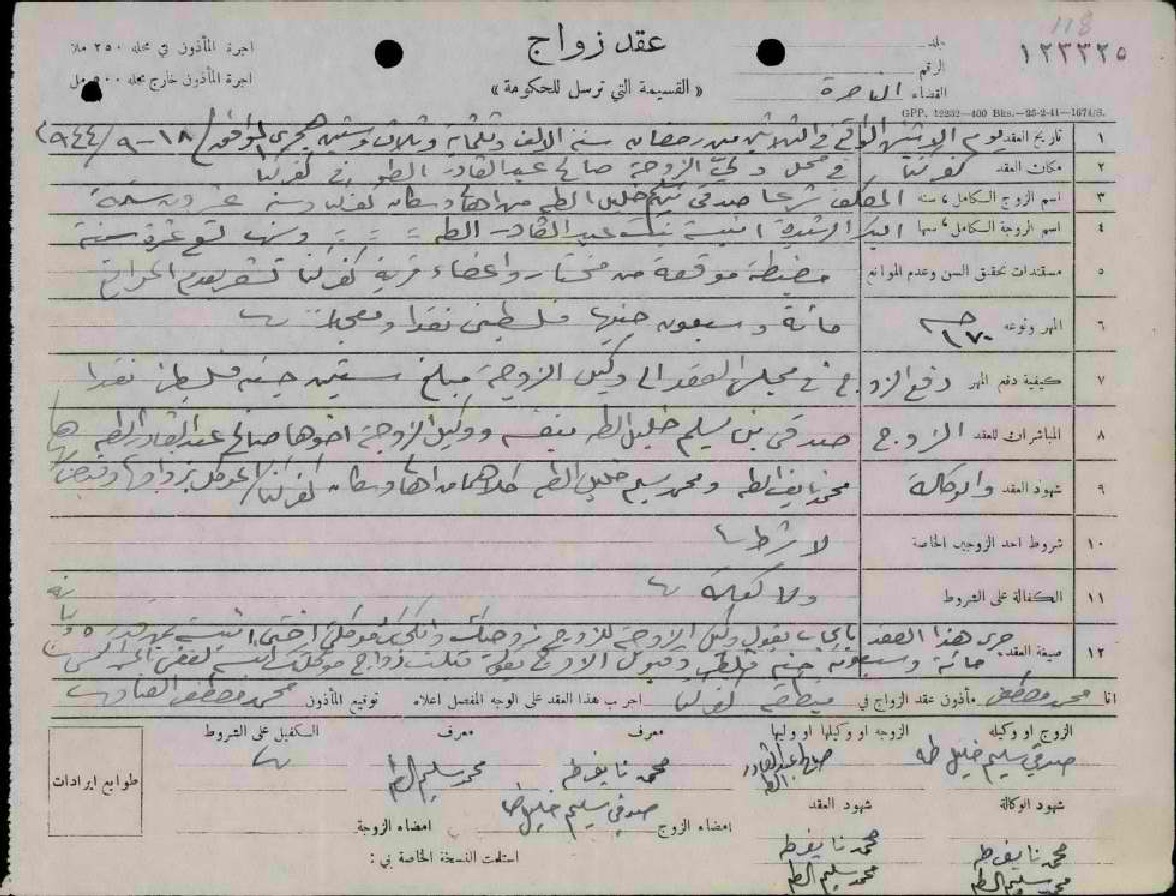 118
١٢٣٣٢٥
عقد زواج
« القسيمة التي ترسل للحكومة »
اجرة المأذون في محله ٢٥٠ ملا
اجرة المأذون خارج محله ٥٠٠ مل
جلد
الرقم
القضاء الناصرة
GPP. 12232—400 Bks.—25-2-41—1674/S.
١ تاريخ العقد يوم الاثنين الواقع في الثلاثين من رمضان سنة الالف وثلثماية وثلاث وستين هجري الموافق ١٨-٩-٩٤٤
٢ مكان العقد كفركنا في محل ولي الزوجة صالح عبد القادر الطه في كفركنا
٣ اسم الزوج الكامل وسنه المكلف شرعا صدقي سليم خليل الطه من اهالي وسكان كفركنا وسنه عشرون سنة
٤ اسم الزوجة الكامل وسنها البكر الرشيدة انيسة بنت عبد القادر الطه = = = وسنها تسع عشرة سنة
٥ مستندات تحقيق السن وعدم الموانع مضبطة موقعة من مختار واعضاء قرية كفركنا تشعر بعدم الموانع
٦ المهر ونوعه ١٧٠ مائة وسبعون جنيها فلسطيني نقدا ومعجلا
٧ كيفية دفع المهر دفع الزوج في مجلس العقد الى وكيل الزوجة مبلغ ستين جنيه فلسطيني نقدا
٨ المباشران للعقد الزوج صدقي بن سليم خليل الطه بنفسه ووكيل الزوجة اخوها صالح عبد القادر الطه
٩ شهود العقد والوكالة محمد نايف الطه ومحمد سليم خليل الطه كلاهما من اهالي وسكان كفركنا
١٠ شروط احد الزوجين الخاصة لا شرط
١١ الكفالة على الشروط ولا كفالة
١٢ صيغة العقد جرى هذا العقد بايجاب بقول وكيل الزوجة للزوج زوجتك وانكحتك موكلتي اختي انيسة بمهر قدره
مائة وسبعون جنيه فلسطيني وقبول الزوج بقوله قبلت زواج موكلتك انيسة لنفسي
انا محمد مصطفى مأذون عقد الزواج في منطقة كفركنا اجريت هذا العقد على الوجه المفصل اعلاه توقيع المأذون محمد مصطفى
الزوج او وكيله الزوجه او وكيلها او وليها معرف معرف الكفيل على الشروط
صدقي سليم خليل طه صالح عبد القادر الطه محمد نايف طه محمد سليم الطه
طوابع ايرادات
شهود الوكالة شهود العقد امضاء الزوج صدقي سليم خليل طه امضاء الزوجة
محمد نايف طه محمد نايف طه استلمت النسخة الخاصة بي :
محمد سليم الطه محمد سليم الطه